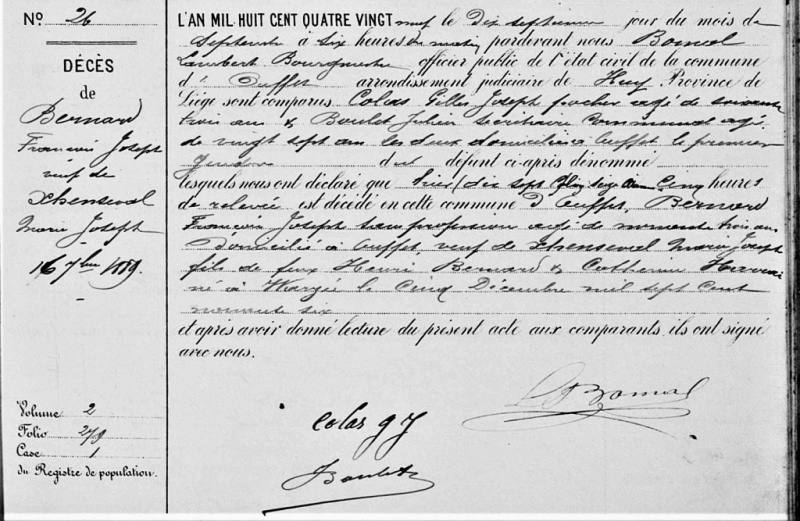 N° 26
DÉCÈS
de
Bernard
François Joseph
veuf de
Xhenseval
Marie Joseph
16 7bre 1889.
Volume 2
Folio 279
Case 1
du Registre de population.
L'AN MIL HUIT CENT QUATRE VINGT neuf le Dix sept jour du mois de
Septembre à six heures du matin, pardevant nous Bomal
Lambert Bourgmestre officier public de l'état civil de la commune
d' Ouffet arrondissement judiciaire de Huy, Province de
Liége sont comparus Colas Gilles Joseph âgé de soixante
trois ans & Boulet Julien secrétaire communal âgé
de vingt sept ans les deux domiciliés à Ouffet le premier
du défunt ci-après dénommé
lesquels nous ont déclaré que hier cinq heures
de relevée est décédé en cette commune d'Ouffet, BERNARD
François Joseph sans profession âgé de nonante trois ans
domicilié à Ouffet, veuf de Xhenseval Marie Joseph
fils de feux Henri Bernard & Catherine
né à Warzée le cinq Décembre mil sept cent
nonante six
et après avoir donné lecture du présent acte aux comparants, ils ont signé
avec nous.
L Bomal
Colas g J
Boulet